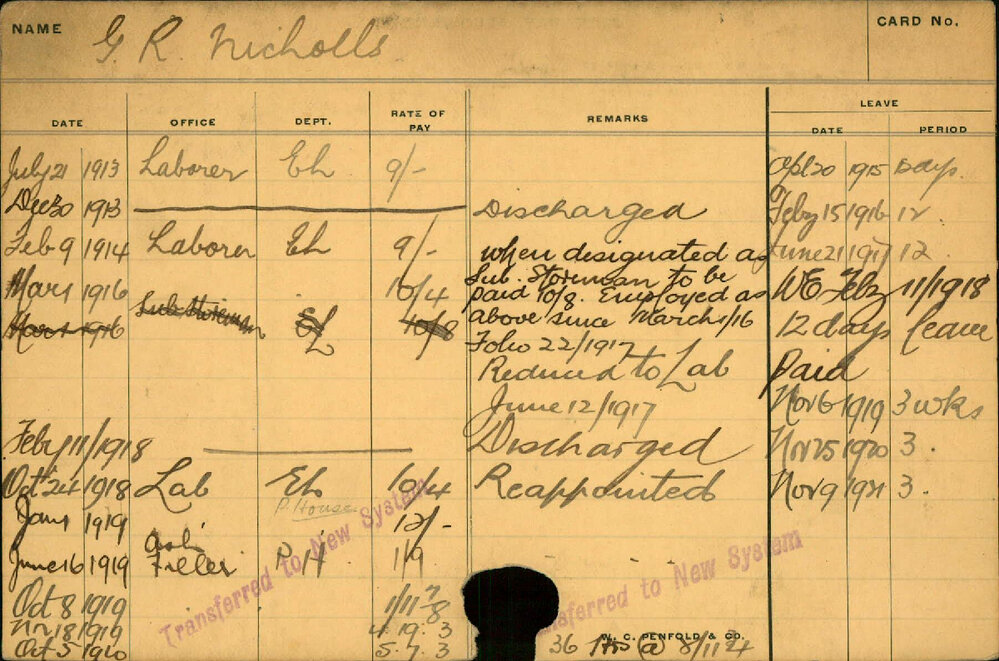 NAME G. R. Nicholls CARD No.
DATE OFFICE DEPT. RATE OF PAY REMARKS LEAVE
DATE PERIOD
July 21 1913 Laborer Eh 9/- Apl 20 1915 Days.
Dec 30 1913 Discharged Feby 15 1916 12.
Feb 9 1914 Laborer Eh 9/- when designated as June 21 1917 12
Mar 1 1916 10/4 Sub. Storeman to be WE Feby 11/1918
paid 10/8. Employed as
Mar 1 1916 Sub Storeman EL 10/8 above since March 1/16 12 days leave
Folio 22/1917
Reduced to Lab Paid
June 12/1917 Nov 6 1919 3 wks
Feby 11/1918 Discharged Nov 25 1920 3.
Oct 24 1918 Lab Eh 10/4 Reappointed Nov 9 1921 3.
P. House
Jan 1 1919 12/-
June 16 1919 Ash Filler P.H 1/9
Oct 8 1919 1/11 7/8
Nov 18 1919 4. 19. 3
Oct 5 1920 5. 7. 3 36 Hrs @
W. C. PENFOLD & CO.
Transferred to New System
Transferred to New System